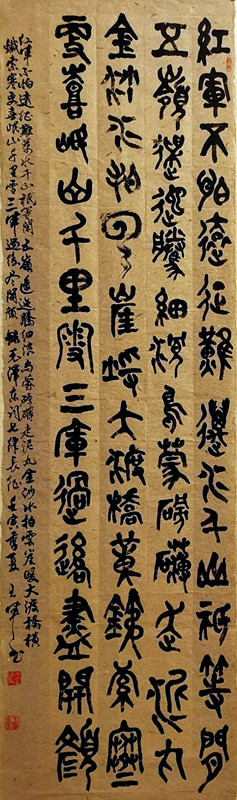 紅軍不怕遠征難萬水千山祇等閒
五嶺逶迤騰細浪烏蒙磅礴走泥丸
金沙水拍雲崖暖大渡橋橫鐵索寒
更喜岷山千里雪三軍過後盡開顏
紅軍不怕遠征難萬水千山祇等閒五嶺逶迤騰細浪烏蒙磅礴走泥丸金沙水拍雲崖暖大渡橋橫
鐵索寒更喜岷山千里雪三軍過後盡開顏錄毛澤東詞七律長征壬寅夏書